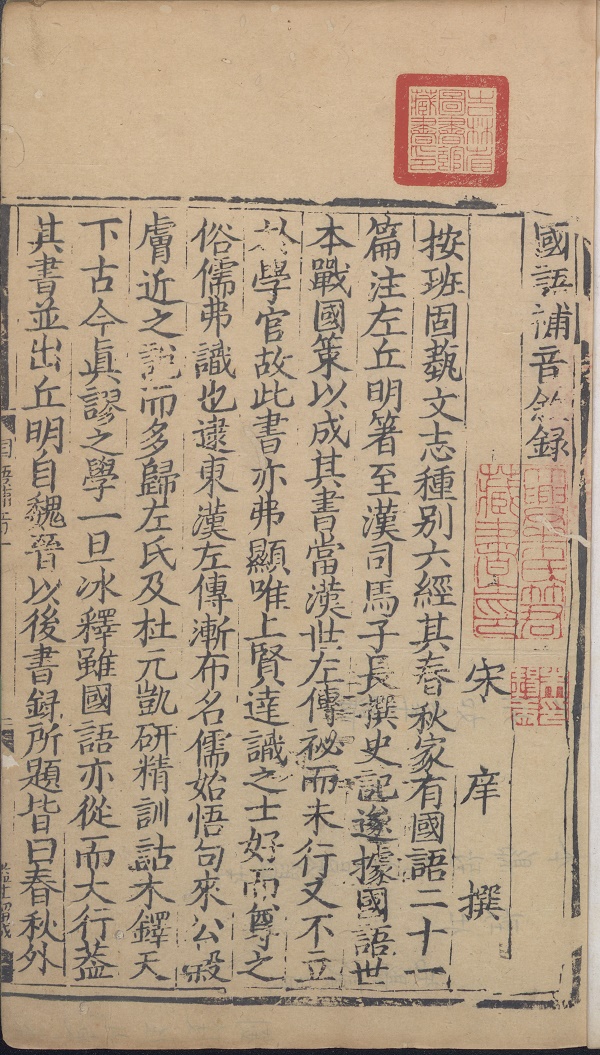 國語補音敘録
宋庠撰
按班固藝文志種别六經其春秋家有國語二十一
篇注左丘明著至漢司馬子長撰史記遂據國語世
本戰國策以成其書當漢世左傳祕而未行又不立
於學官故此書亦弗顯唯上賢達識之士好而尊之
俗儒弗識也逮東漢左傳漸布名儒始悟向來公穀
膚近之説而多歸左氏及杜元凱研精訓詁木鐸天
下古今眞謬之學一旦冰釋雖國語亦從而大行蓋
其書並出丘明自魏晉以後書録所題皆曰春秋外
吉林省
圖書館
藏書印